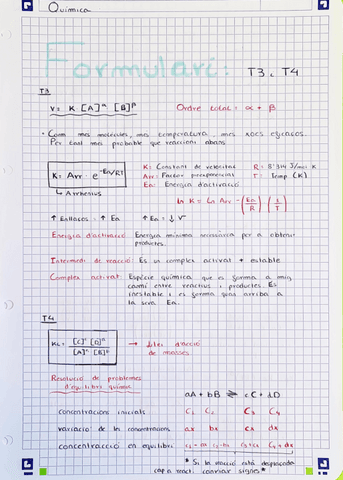 Química
Formulari: T3, T4
T3
v = K [A]^α [B]^β Ordre total = α + β
• Com més molècules, més temperatura, més xocs eficaços.
Per tant més probable que reaccioni abans
K = Arr · e^-Ea/RT
↳ Arrhenius
K: Constant de velocitat R = 8'314 J/mol K
Arr = Factor preexponencial T = Temp (K)
Ea: Energia d'activació
ln K = Ln Arr - (Ea/R) (1/T)
↑ Enllaços = ↑ Ea ↑ Ea = ↓ V
Energia d'activació: Energia mínima necessària per a obtenir
productes.
Intermedi de reacció: És un complex activat + estable
Complex activat: Espècie química que es forma a mig
camí entre reactius i productes. És
inestable i es forma quan arriba a
la seva Ea.
T4
Kc = [C]^c [D]^d / [A]^a [B]^b → Llei d'acció
de masses
Resolució de problemes
d'equilibri químic
aA + bB ⇌ cC + dD
concentracions inicials C1 C2 C3 C4
variació de les concentracions ax bx cx dx
concentracció en equilibri C1-ax C2-bx C3+cx C4+dx
* Si la reacció està desplaçada
cap a react. canviar signes *